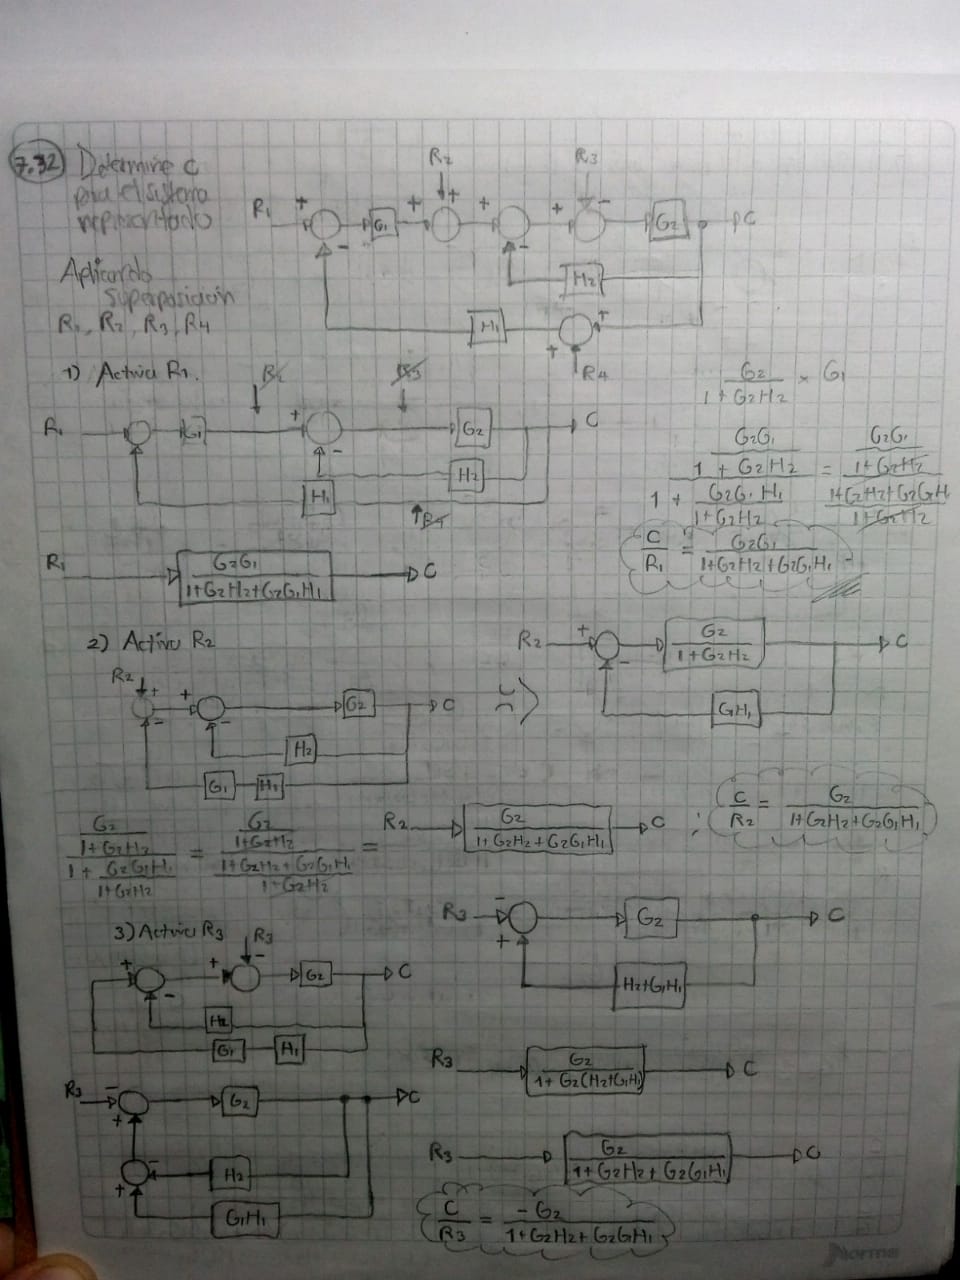 7.32 Determine C
para el sistema
representado
Aplicando
superposición
R1, R2, R3, R4
R2 R3
R1 + - G1 + + + - + - G2 C
H2
H1 + +
R4
1) Activa R1.
R2 R3
R1 G1 + - G2 C
H2
H1
R4
G2 / 1 + G2H2 × G1
G2G1 / 1 + G2H2 / 1 + G2G1H1 / 1+G2H2 = G2G1 / 1+G2H2 / 1+G2H2+G2G1H1 / 1+G2H2
C / R1 = G2G1 / 1+G2H2+G2G1H1
R1 G2G1 / 1+G2H2+G2G1H1 C
2) Activa R2
R2 + - + - G2 C
H2
G1 H1
R2 + - G2 / 1+G2H2 C
GH1
G2 / 1+G2H2 / 1 + G2G1H1 / 1+G2H2 = G2 / 1+G2H2 / 1+G2H2+G2G1H1 / 1+G2H2 =
R2 G2 / 1+G2H2+G2G1H1 C ; C / R2 = G2 / 1+G2H2+G2G1H1
3) Activa R3
R3
+ - + - G2 C
H2
G1 H1
R3 - + G2 C
- + H2
G1H1
R3 - + G2 C
H2+G1H1
R3 G2 / 1+G2(H2+G1H1) C
R3 G2 / 1+G2H2+G2G1H1 C
C / R3 = -G2 / 1+G2H2+G2G1H1
Norma